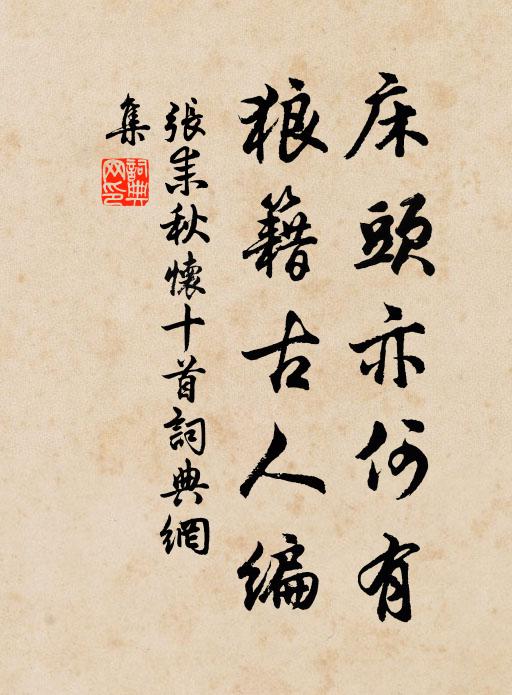 床頭亦何有
狼籍古人編
張耒秋懷十首詞典網
集
詞典
网印